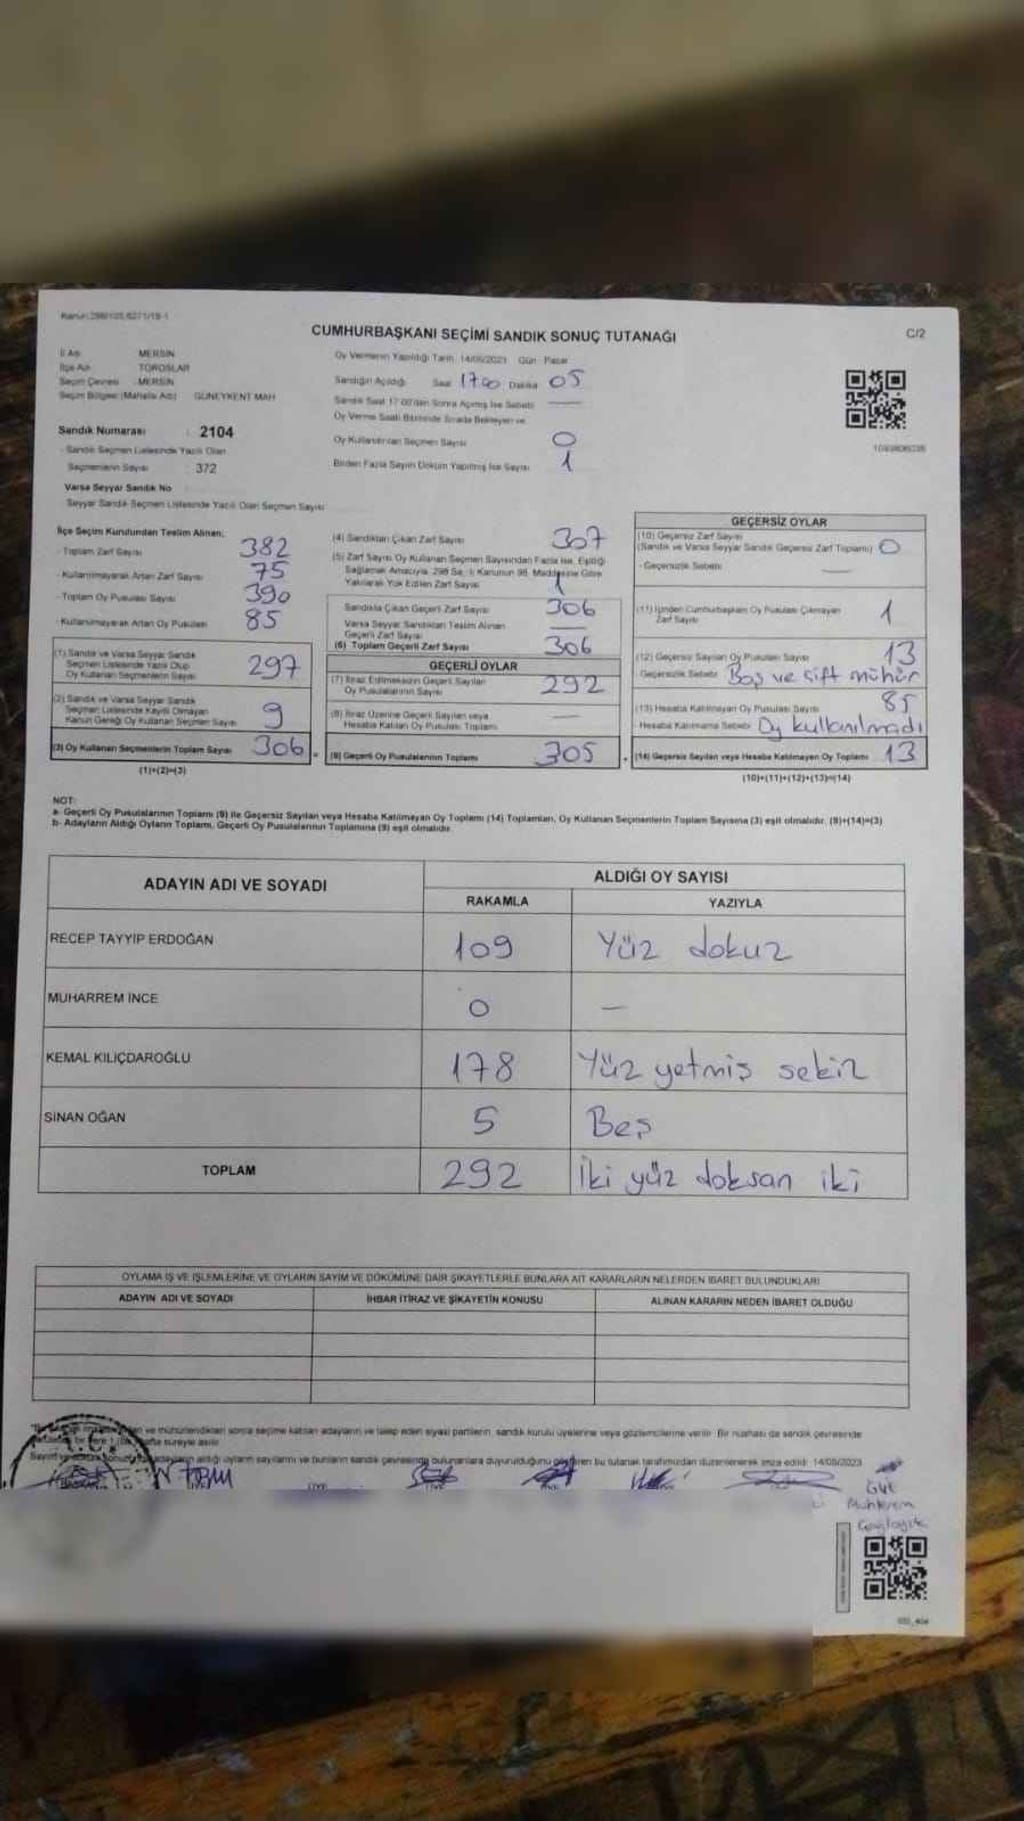 CUMHURBAŞKANI SEÇİMİ SANDIK SONUÇ TUTANAĞI
C/2
İl Adı MERSİN
İlçe Adı TOROSLAR
Seçim Çevresi MERSİN
Seçim Bölgesi (Mahalle Adı) GÜNEYKENT MAH
Sandık Numarası : 2104
- Sandık Seçmen Listesinde Yazılı Olan
Seçmenlerin Sayısı 372
Varsa Seyyar Sandık No
Seyyar Sandık Seçmen Listesinde Yazılı Olan Seçmen Sayısı
Oy Vermenin Yapıldığı Tarih 14/05/2023 Gün Pazar
Sandığın Açıldığı Saat 17:00 Dakika 05
Sandık Saat 17:00'dan Sonra Açılmış İse Sebebi
Oy Verme Saati Bitiminde Sırada Bekleyen ve
Oy Kullandırılan Seçmen Sayısı 0
Birden Fazla Sayım Döküm Yapılmış İse Sayısı 1
İlçe Seçim Kurulundan Teslim Alınan;
- Toplam Zarf Sayısı 382
- Kullanılmayarak Artan Zarf Sayısı 75
- Toplam Oy Pusulası Sayısı 390
- Kullanılmayarak Artan Oy Pusulası 85
(1) Sandık ve Varsa Seyyar Sandık
Seçmen Listesinde Yazılı Olup
Oy Kullanan Seçmenlerin Sayısı 297
(2) Sandık ve Varsa Seyyar Sandık
Seçmen Listesinde Kayıtlı Olmayan
Kanun Gereği Oy Kullanan Seçmen Sayısı 9
(3) Oy Kullanan Seçmenlerin Toplam Sayısı 306
(1)+(2)=(3)
(4) Sandıktan Çıkan Zarf Sayısı 307
(5) Zarf Sayısı Oy Kullanan Seçmen Sayısından Fazla İse, Eşitliği
Sağlamak Amacıyla, 298 Sayılı Kanunun 98. Maddesine Göre
Yakılarak Yok Edilen Zarf Sayısı 1
Sandıkta Çıkan Geçerli Zarf Sayısı 306
Varsa Seyyar Sandıktan Teslim Alınan
Geçerli Zarf Sayısı
(6) Toplam Geçerli Zarf Sayısı 306
GEÇERLİ OYLAR
(7) İtiraz Edilmeksizin Geçerli Sayılan
Oy Pusulalarının Sayısı 292
(8) İtiraz Üzerine Geçerli Sayılan veya
Hesaba Katılan Oy Pusulası Toplamı —
(9) Geçerli Oy Pusulalarının Toplamı 305
GEÇERSİZ OYLAR
(10) Geçersiz Zarf Sayısı
(Sandık ve Varsa Seyyar Sandık Geçersiz Zarf Toplamı) 0
- Geçersizlik Sebebi —
(11) İçinden Cumhurbaşkanı Oy Pusulası Çıkmayan
Zarf Sayısı 1
(12) Geçersiz Sayılan Oy Pusulası Sayısı 13
Geçersizlik Sebebi Boş ve çift mühür
(13) Hesaba Katılmayan Oy Pusulası Sayısı 85
Hesaba Katılmama Sebebi Oy kullanılmadı
(14) Geçersiz Sayılan veya Hesaba Katılmayan Oy Toplamı 13
(10)+(11)+(12)+(13)=(14)
NOT:
a- Geçerli Oy Pusulalarının Toplamı (9) ile Geçersiz Sayılan veya Hesaba Katılmayan Oy Toplamı (14) Toplamları, Oy Kullanan Seçmenlerin Toplam Sayısına (3) eşit olmalıdır. (9)+(14)=(3)
b- Adayların Aldığı Oyların Toplamı, Geçerli Oy Pusulalarının Toplamına (9) eşit olmalıdır.
ADAYIN ADI VE SOYADI
ALDIĞI OY SAYISI
RAKAMLA YAZIYLA
RECEP TAYYİP ERDOĞAN 109 Yüz dokuz
MUHARREM İNCE 0 —
KEMAL KILIÇDAROĞLU 178 Yüz yetmiş sekiz
SİNAN OĞAN 5 Beş
TOPLAM 292 İki yüz doksan iki
OYLAMA İŞ VE İŞLEMLERİNE VE OYLARIN SAYIM VE DÖKÜMÜNE DAİR ŞİKAYETLERLE BUNLARA AİT KARARLARIN NELERDEN İBARET BULUNDUKLARI
ADAYIN ADI VE SOYADI İHBAR İTİRAZ VE ŞİKAYETİN KONUSU ALINAN KARARIN NEDEN İBARET OLDUĞU
ve mühürlendikten sonra seçime katılan adayların ve talep eden siyasi partilerin, sandık kurulu üyelerine veya gözlemcilerine verilir. Bir nüshası da sandık çevresinde
hafta süreyle asılır.
adayların aldığı oyların sayılarını ve bunların sandık çevresinde bulunanlara duyurulduğunu gösteren bu tutanak tarafımızdan düzenlenerek imza edildi. 14/05/2023
T.C.
Gül
Muhterem